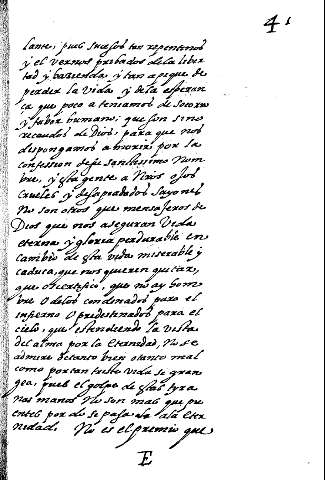 41
lante, pues sucesos tan repentinos
y el vernos privados de la liber
tad y hacienda, y tan a pique de
perder la vida y de la esperan
ça que poco a teniamos de socorro
y fabor humano; que son sino
recaudos de Dios; para que nos
dispongamos a morir por la
confession de su santissimo nom
bre, y esta gente a nros ojos
crueles y desapiadados sayones
No son otros que mensajeros de
Dios que nos aseguran vida
eterna y gloria perdurable en
cambio de esta vida miserable y
caduca, que nos quieren quitar,
que
 que no ay hom
bre o de los condenados para el
infierno o predestinados para el
cielo, que estendiendo la vista
del alma por la eternidad, no se
admire de tanto bien o tanto mal
como por tan triste vida se gran
gea, pues el golpe de estas tyra
nas manos no son mas que pu
entes por do se pasa a la eter
nidad. No es el premio que
E